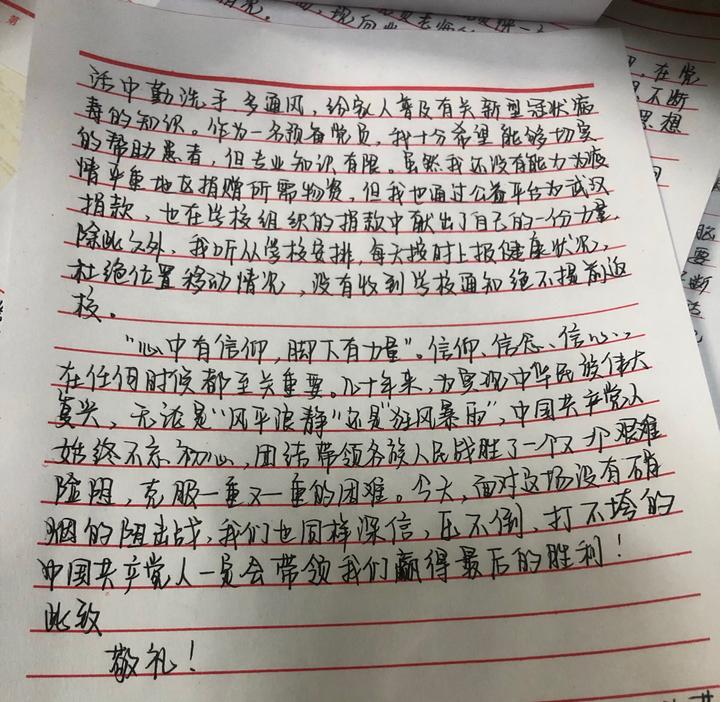 活中勤洗手多通风，给家人普及有关新型冠状病
毒的知识。作为一名预备党员，我十分希望能够切实
的帮助患者，但专业知识有限。虽然我还没有能力为疫
情严重地区捐赠所需物资，但我也通过公益平台为武汉
捐款，也在学校组织的捐款中献出了自己的一份力量。
除此之外，我听从学校安排，每天按时上报健康状况，
杜绝位置移动情况，没有收到学校通知绝不提前返
校。
“心中有信仰，脚下有力量”。信仰、信念、信心，
在任何时候都至关重要。几十年来，为实现中华民族伟大
复兴，无论是“风平浪静”还是“狂风暴雨”，中国共产党人
始终不忘初心，团结带领各族人民战胜了一个又一个艰难
险阻，克服一重又一重的困难。今天，面对这场没有硝
烟的阻击战，我们也同样深信，压不倒、打不垮的
中国共产党人一定会带领我们赢得最后的胜利！
此致
敬礼！
第
在党
不断
思想
要
断